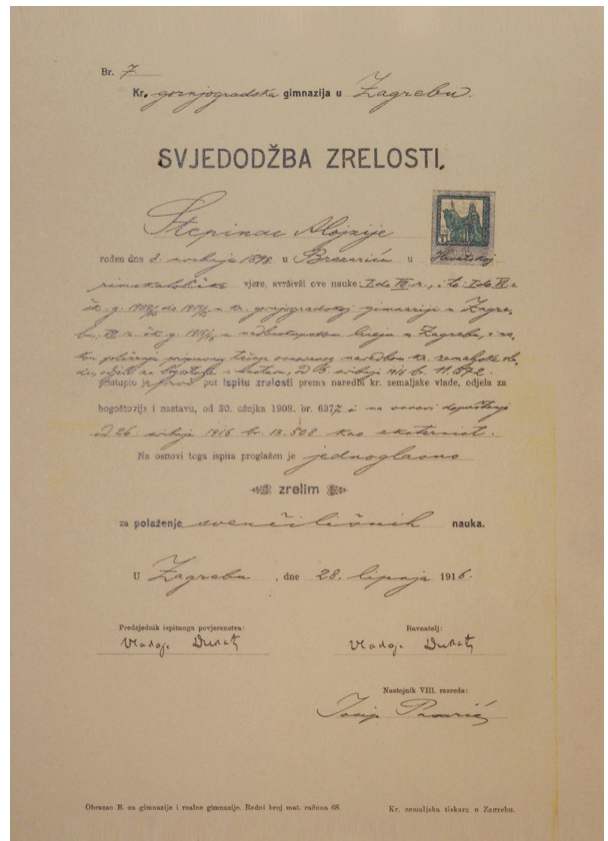 Br. 7
Kr. gornjogradska gimnazija u Zagrebu.
SVJEDODŽBA ZRELOSTI.
Stepinac Alojzije
rođen dne 8. svibnja 1898. u Brezariću u Hrvatskoj
rimokatoličke vjere, svršivši ove nauke: I. do VI. r.
šk. g. 1909/10 do 1914/15 u kr. gornjogradskoj gimnaziji u Zagre-
bu, VII. r. šk. g. 1915/16 u nadbiskupskom liceju u Zagrebu, i na-
kon polaganja
i nastavu, od 1916 br. 11.572.
pristupio je prvi put ispitu zrelosti prema naredbi kr. zemaljske vlade, odjela za
bogoštovje i nastavu, od 30. ožujka 1908. br. 6372 i na osnovi dopuštenja
od 26. svibnja 1916 br. 13.508 kao eksternist.
Na osnovi toga ispita proglašen je jednoglasno
zrelim
za polaženje sveučilišnih nauka.
U Zagrebu, dne 28. lipnja 1916.
Predsjednik ispitnoga povjerenstva:
Ravnatelj:
Vladoje Dukat
Vladoje Dukat
Nastojnik VIII. razreda:
Josip Pasarić
Obrazac B. za gimnazije i realne gimnazije. Redni broj mat. računa 68.
Kr. zemaljska tiskara u Zagrebu.